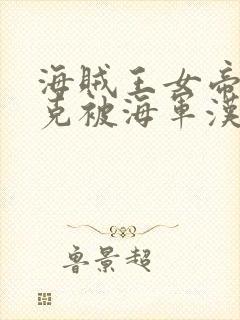 海賊王女帝
克被海軍漢
魯景超